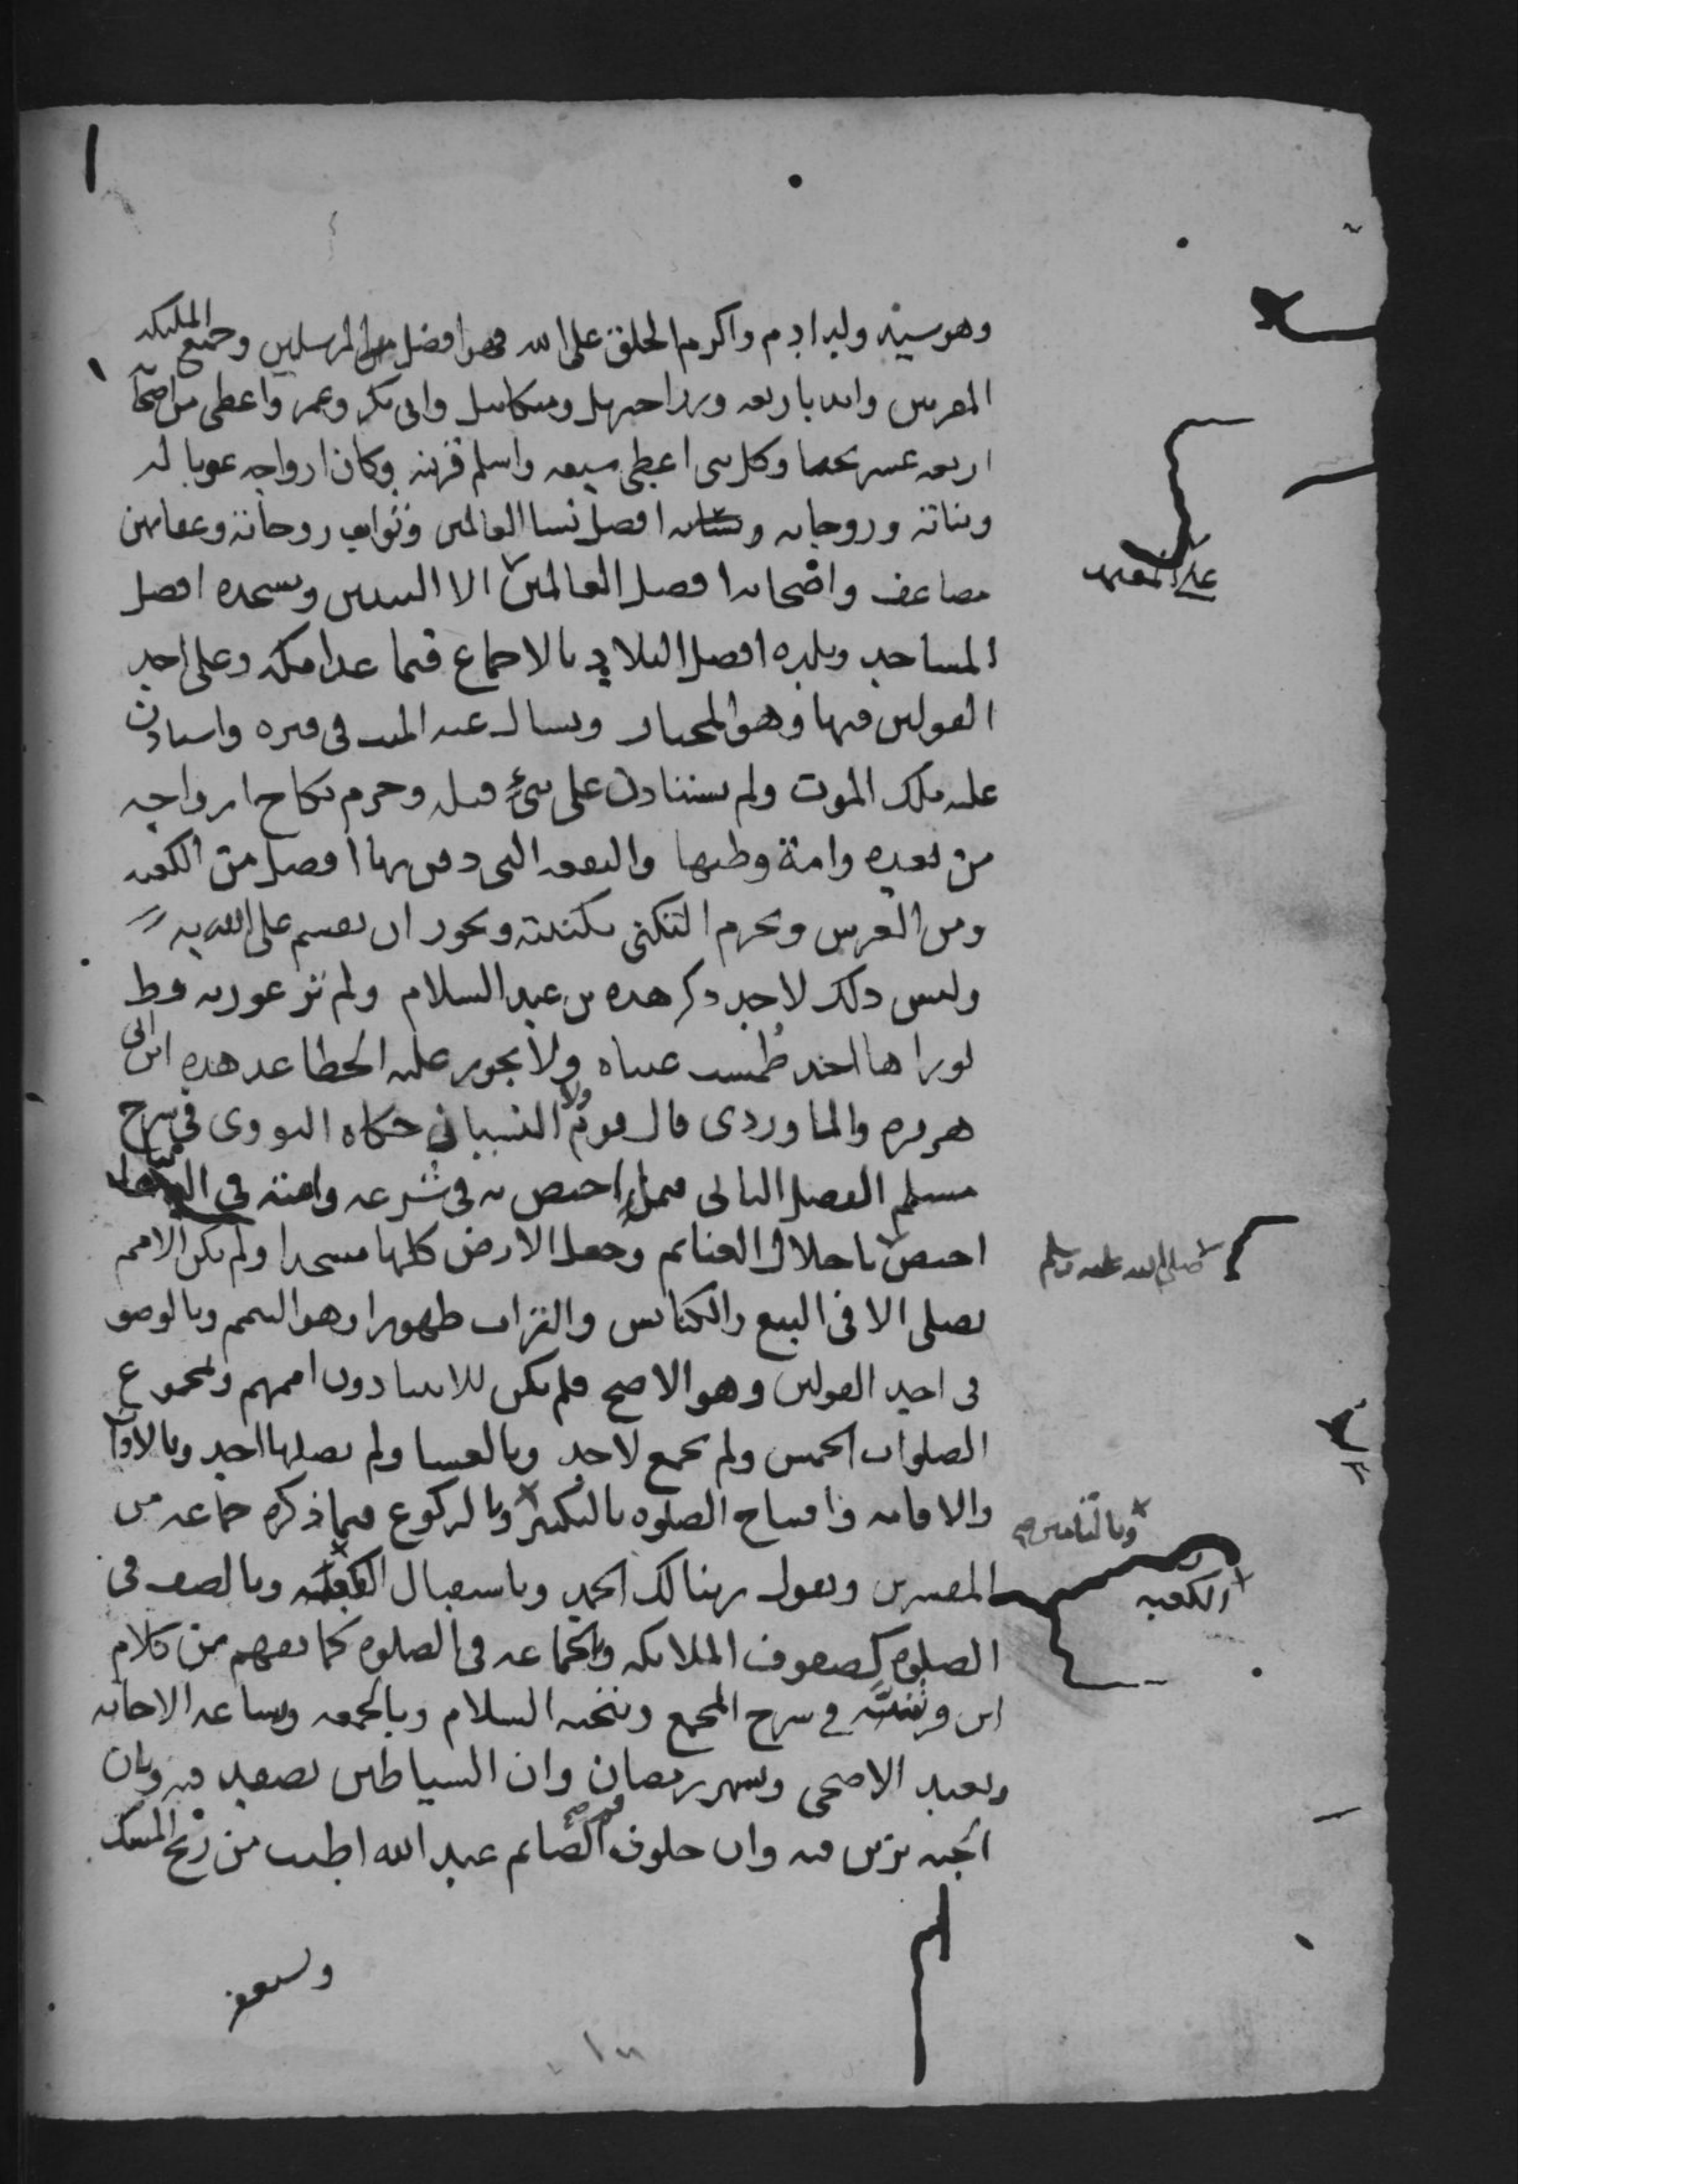 وهو سيد ولد ادم واكرم الخلق على الله فهو افضل من المرسلين وجميع الملائكة
المقربين وايد باربعة وزرا جبريل وميكائيل وابي بكر وعمر واعطي من اصحابه
اربعة عشر نجيبا وكل نبي اعطي سبعة واسلم قرينه وكان ازواجه عونا له
وبناته وزوجاته افضل نسا العالمين وثواب زوجاته وعقابهن
مضاعف واصحابه افضل العالمين الا النبيين ومسجده افضل
على المعتمد
المساجد وبلده افضل البلاد بالاجماع فيما عدا مكة وعلى احد
القولين فيها وهو المختار ويسال عنه الميت في قبره واستاذن
عليه ملك الموت ولم يستاذن على نبي قبله وحرم نكاح ازواجه
من بعده وامة وطيها والبقعة التي دفن بها افضل من الكعبة
ومن العرش ويحرم التكني بكنيته ويجوز ان يقسم على الله به
وليس ذلك لاحد ذكر هذه بن عبد السلام ولم تر عورته قط
لو راها احد طمست عيناه ولا يجوز عليه الخطا عد هذه ابن ابي
هريرة والماوردي قال قوم ولا النسيان حكاه النووي في شرح
مسلم الفصل الثاني فيما اختص به في شرعه وامته في
اختص باحلال الغنائم وجعل الارض كلها مسجدا ولم تكن الامم
صلى الله عليه وسلم
تصلي الا في البيع والكنائس والتراب طهورا وهو التيمم وبالوضو
في احد القولين وهو الاصح فلم يكن للانبيا دون اممهم وبمجموع
الصلوات الخمس ولم تجمع لاحد وبالعشا ولم يصلها احد وبالاذان
والاقامة وافتتاح الصلوة بالتكبير وبالركوع فيما ذكره جماعة من
وبالتامين صح
المفسرين وبقول ربنا لك الحمد وباستقبال وبالصف في
الكعبة
الصلوة كصفوف الملائكة والجماعة في الصلوة كما يفهم من كلام
ابن فرشته في شرح المجمع وبتحية السلام وبالجمعة وساعة الاجابة
وبعيد الاضحى وشهر رمضان وان الشياطين تصفد فيه وبان
الجنة تزين فيه وان خلوف فم الصائم عند الله اطيب من ريح المسك
وتستغفر